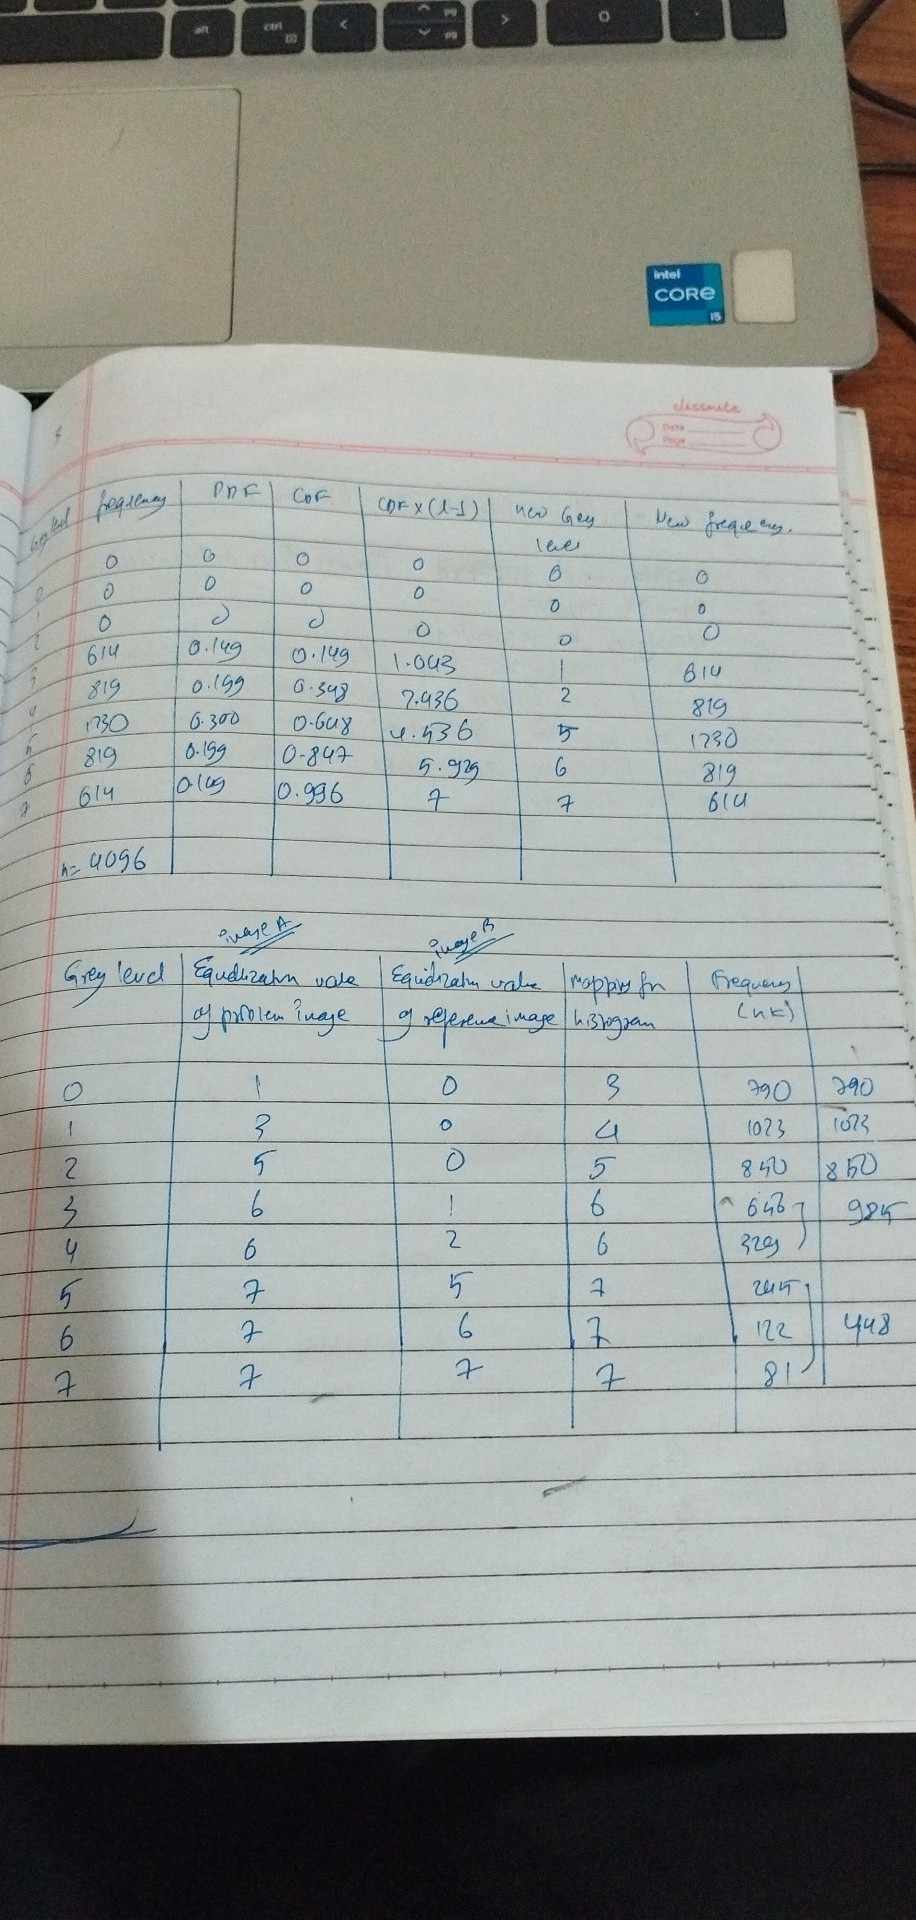 alt ctrl
intel
CORE
i5
classmate
Date
Page
Grey level frequency PDF CDF CDF x (L-1) new Grey level New frequency.
0 0 0 0 0 0 0
1 0 0 0 0 0 0
2 0 0 0 0 0 0
3 614 0.149 0.149 1.043 1 614
4 819 0.199 0.348 2.436 2 819
5 1230 0.300 0.648 4.536 5 1230
6 819 0.199 0.847 5.929 6 819
7 614 0.149 0.996 7 7 614
n= 4096
image A image B
Grey level Equilization value Equilization value mapping for Frequency
of problem image of reference image histogram (nk)
0 1 0 3 790 790
1 3 0 4 1023 1023
2 5 0 5 850 850
3 6 1 6 656 985
4 6 2 6 329
5 7 5 7 245
6 7 6 7 122 448
7 7 7 7 81